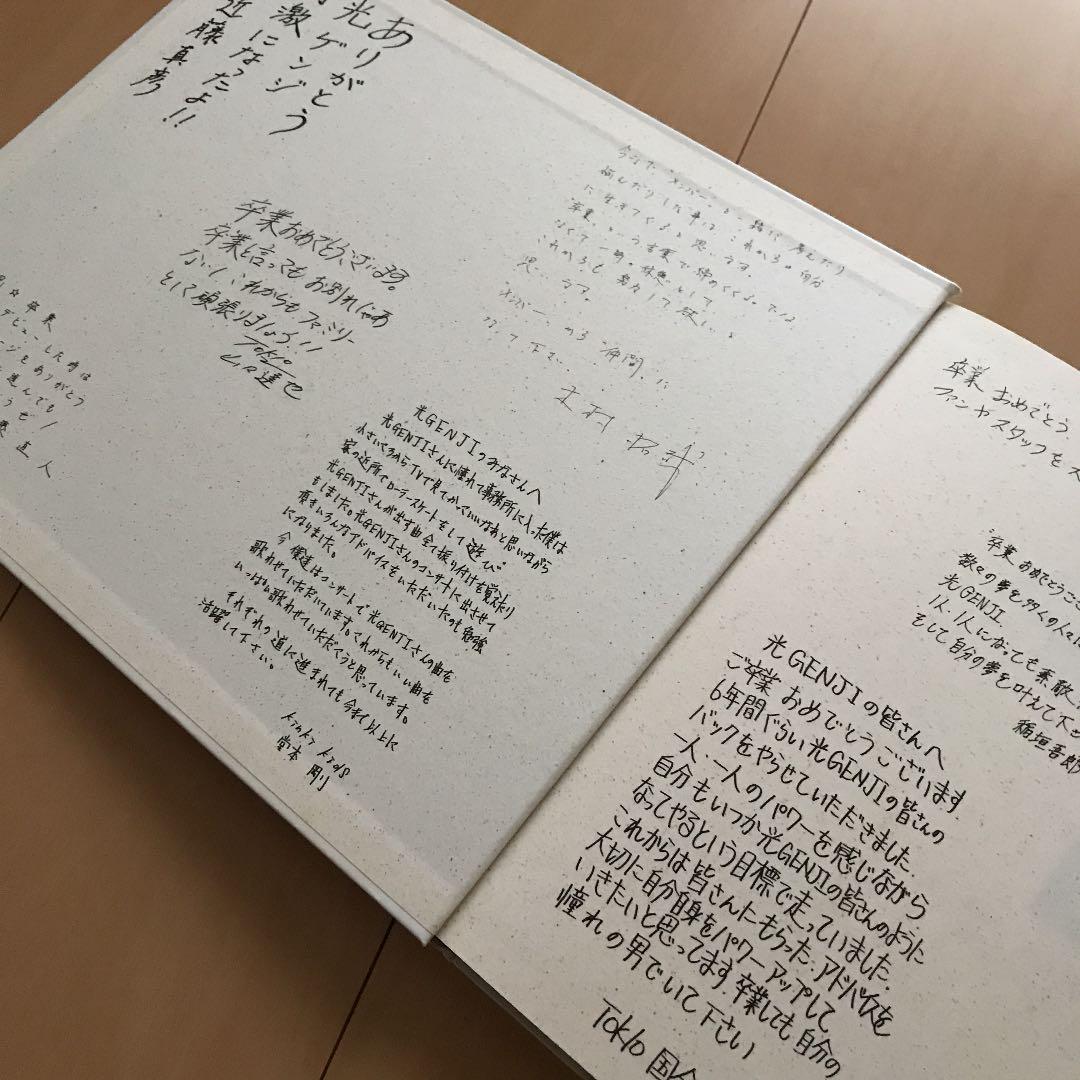 ありがとう
光ゲンジ
激になったよ!!
近藤真彦
卒業おめでとうございます。
卒業と言ってもお別れじゃあ
ないし、これからもファミリー
として頑張りましょう!!
TOKIO
山口達也
卒業
デビューした時は
ージをありがとう
進んでも
うぜ!
直人
今まで、メンバーと一緒に、考えたり
悩んだりした事は、これからの自分
に生きてくると思います。
"卒業"という言葉で締めくくるのでは
なくて、一時の休憩として
これからも、努力して欲しいと
思います。
メンバー、のち"仲間"に
なって下さい。
木村拓哉
光GENJIのみなさんへ
光GENJIさんに憧れて事務所に入った僕は
小さいころからTVで見てかっこいいなあと思いながら
家の近所でローラースケートをして遊び
光GENJIさんが出す曲全て振り付けを覚えたり
もしました。光GENJIさんのコンサートに出させて
頂きいろんなアドバイスをいただいたのも勉強
になりました。
今僕達はコンサートで光GENJIさんの曲を
歌わせていただいています。これからもいい曲を
いっぱい歌わせていただこうと思っています。
それぞれの道に進まれても今まで以上に
活躍して下さい。
KinKi Kids
堂本 剛
卒業おめでとう
ファンやスタッフを大
卒業おめでとうござ
数々の夢を多くの人々に
光GENJI
1人1人になっても素敵
そして自分の夢を叶えて下さ
稲垣吾郎
光GENJIの皆さんへ
ご卒業おめでとうございます.
6年間ぐらい光GENJIの皆さんの
バックをやらせていただきました.
一人、一人のパワーを感じながら
自分もいつか光GENJIの皆さんのように
なってやるという目標で走っていました.
これからは皆さんにもらったアドバイスを
大切に自分自身をパワーアップして
いきたいと思ってます.卒業しても自分の
憧れの男でいて下さい
TOKIO 国分